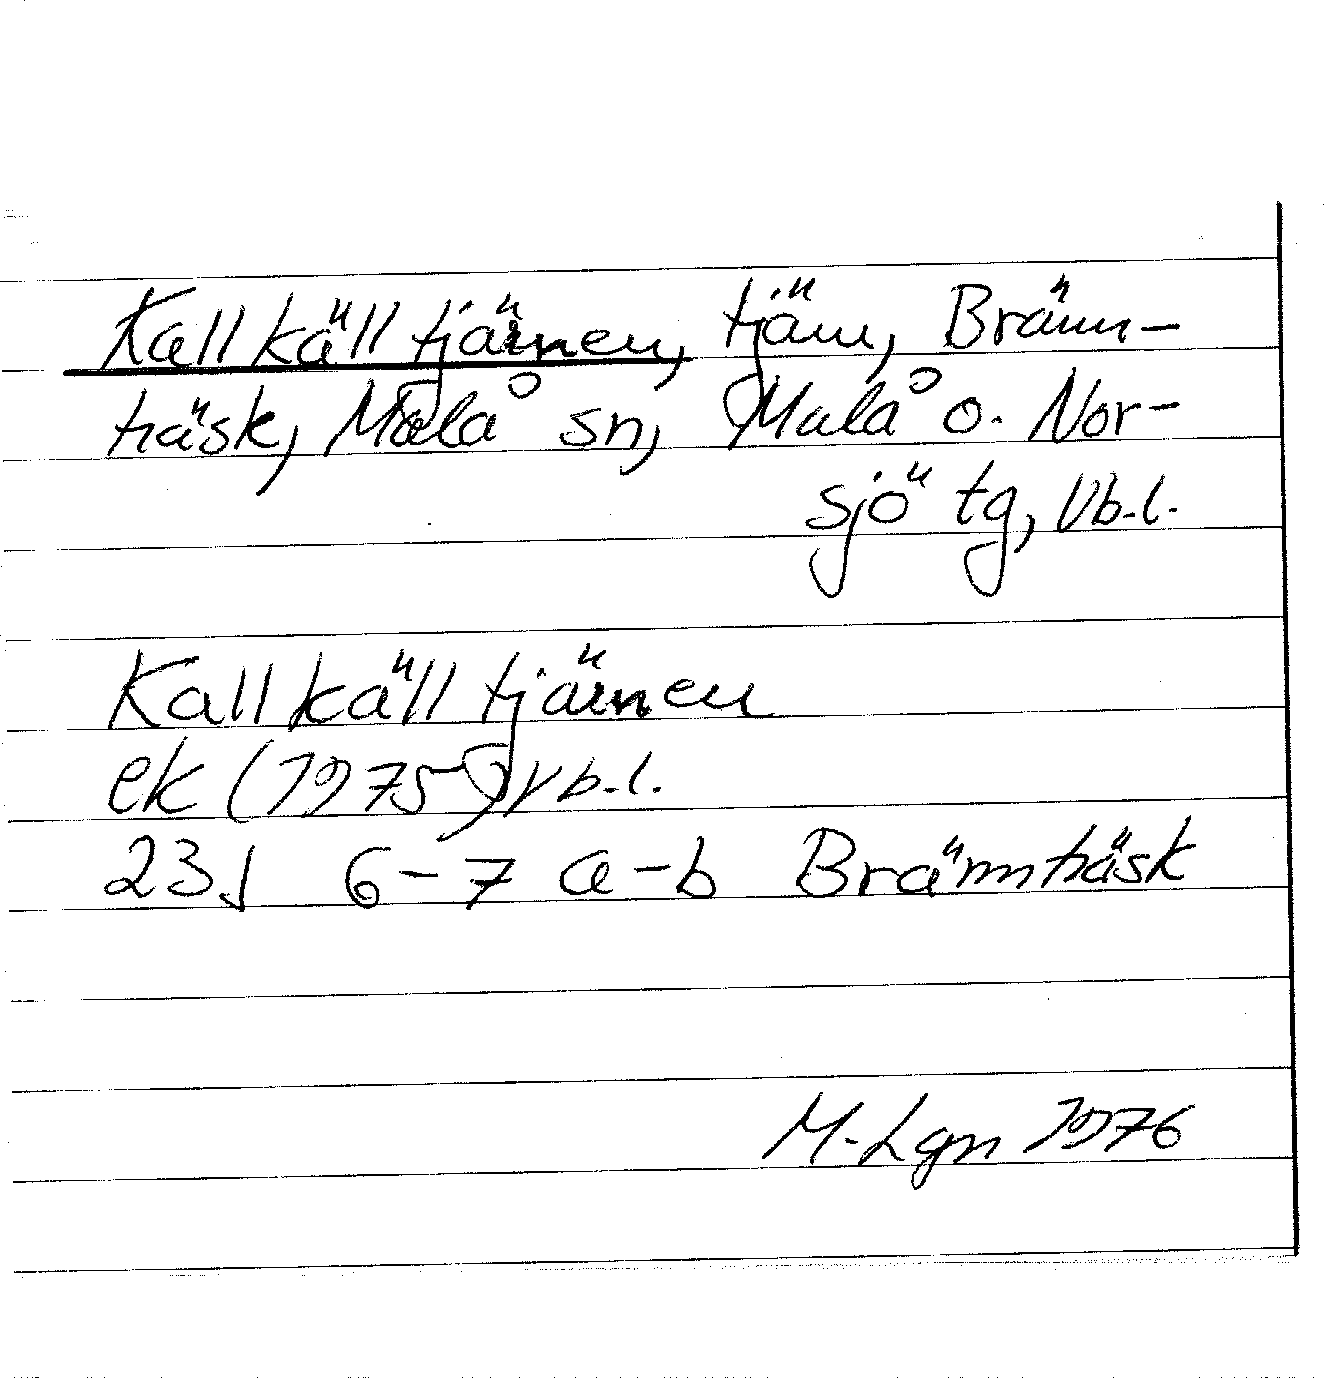 Kallkälltjärnen, tjärn, Bränn-
träsk, Malå sn, Malå o. Nor-
sjö tg, Vb.l.
Kallkälltjärnen
ek (1975) Vb.l.
23J 6-7 a-b Brännträsk
M-Lgn 1976